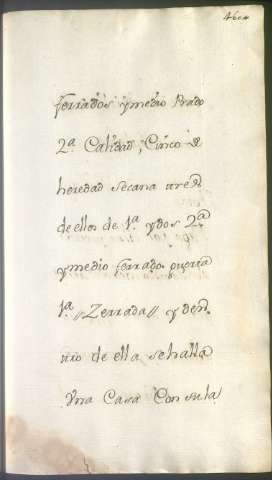 460
ferrados ymedio Prado
2ª Calidad, Cinco de
heredad secana
de ellos de 1ª ydos 2ª
ymedio ferrado
1ª //Zerrada// y den
tro de ella sehalla
Vna Casa Con sala